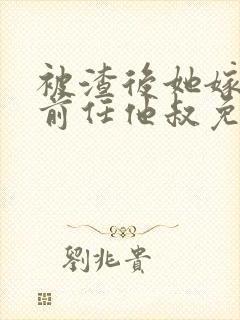 被渣後她嫁
前任他叔免
劉兆貴